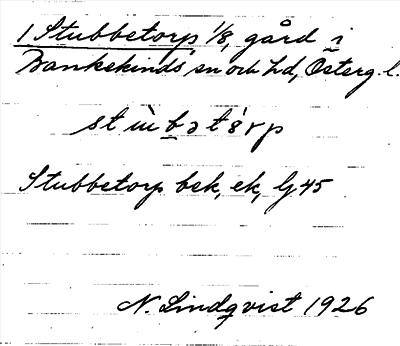 1 Stubbetorp 1/8, gård i
Bankekinds sn och hd, Österg. l.
stùbətórp
Stubbetorp bsk, ek, lj 45
N. Lindqvist 1926